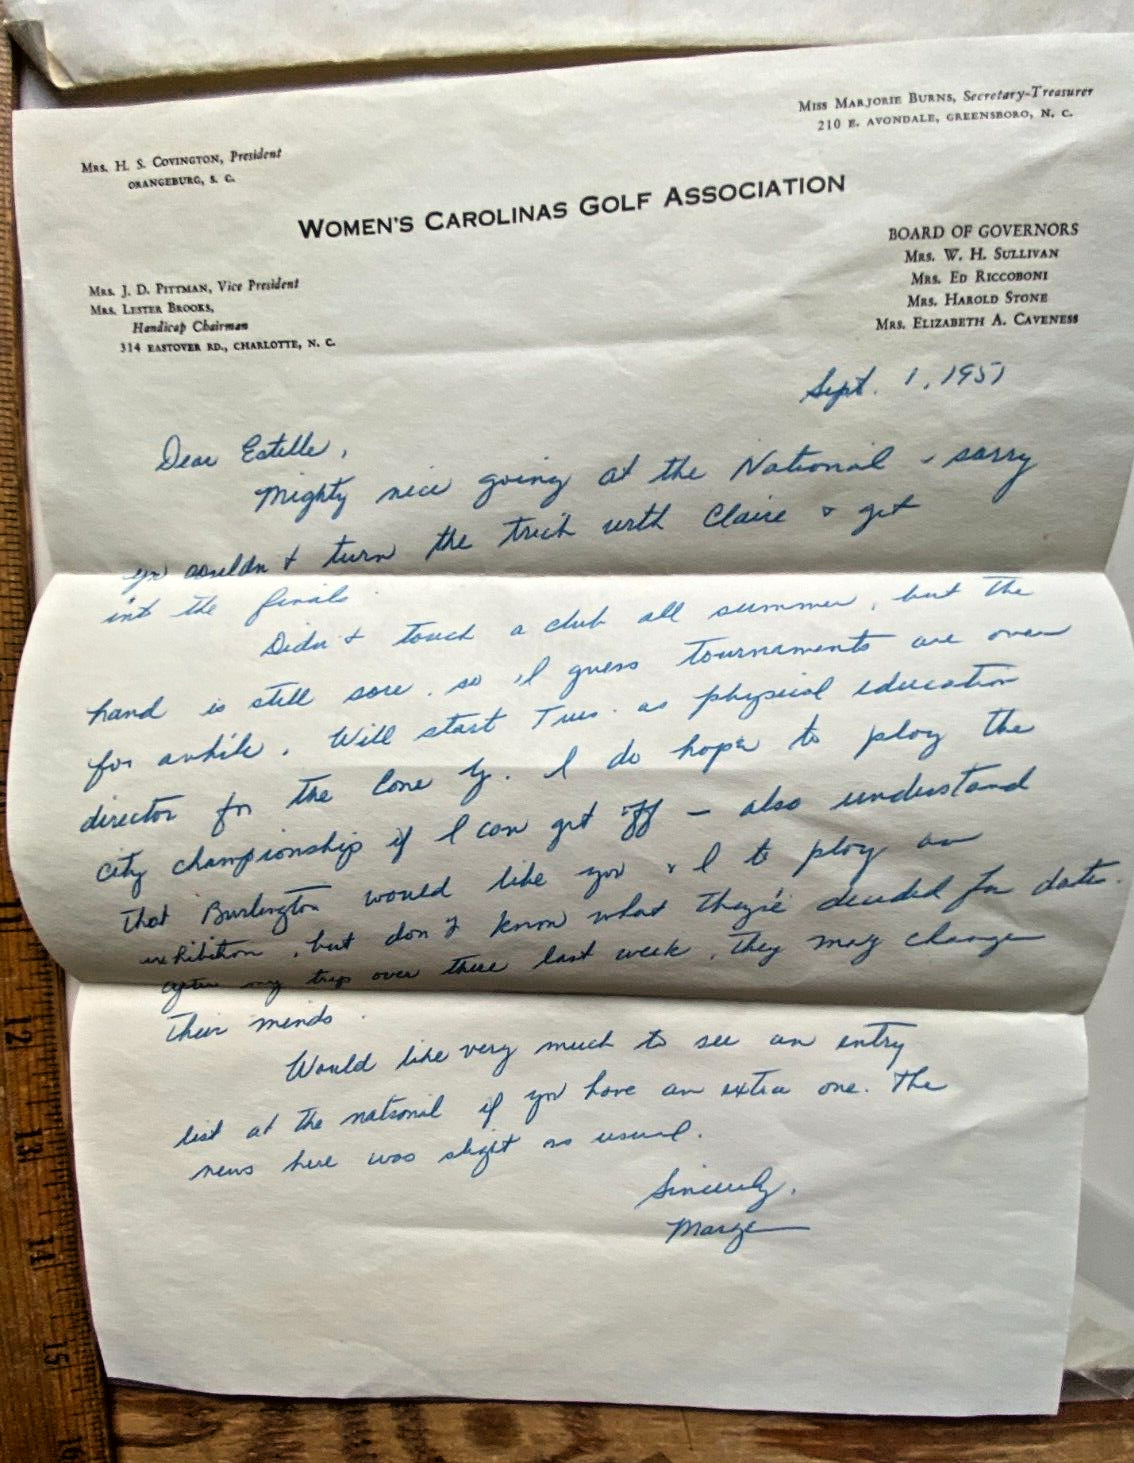 Miss Marjorie Burns, Secretary-Treasurer
210 E. Avondale, Greensboro, N. C.
Mrs. H. S. Covington, President
Orangeburg, S. C.
Women's Carolinas Golf Association
BOARD OF GOVERNORS
Mrs. W. H. Sullivan
Mrs. Ed Riccoboni
Mrs. Harold Stone
Mrs. Elizabeth A. Caveness
Mrs. J. D. Pittman, Vice President
Mrs. Lester Brooks,
Handicap Chairman
314 Eastover Rd., Charlotte, N. C.
Sept. 1, 1951
Dear Estelle,
Mighty nice going at the National - sorry
you couldn't turn the trick with Claire & get
into the finals.
Didn't touch a club all summer, but the
hand is still sore, so I guess tournaments are over
for awhile. Will start Tues. as physical education
director for the Cone Y. I do hope to play the
city championship if I can get off — also understand
that Burlington would like you & I to play an
exhibition, but don't know what they've decided for date.
after my trip over there last week, they may change
their minds.
Would like very much to see an entry
list at the national if you have an extra one. The
news here was slight as usual.
Sincerely,
Marge
12
13
14
15
16